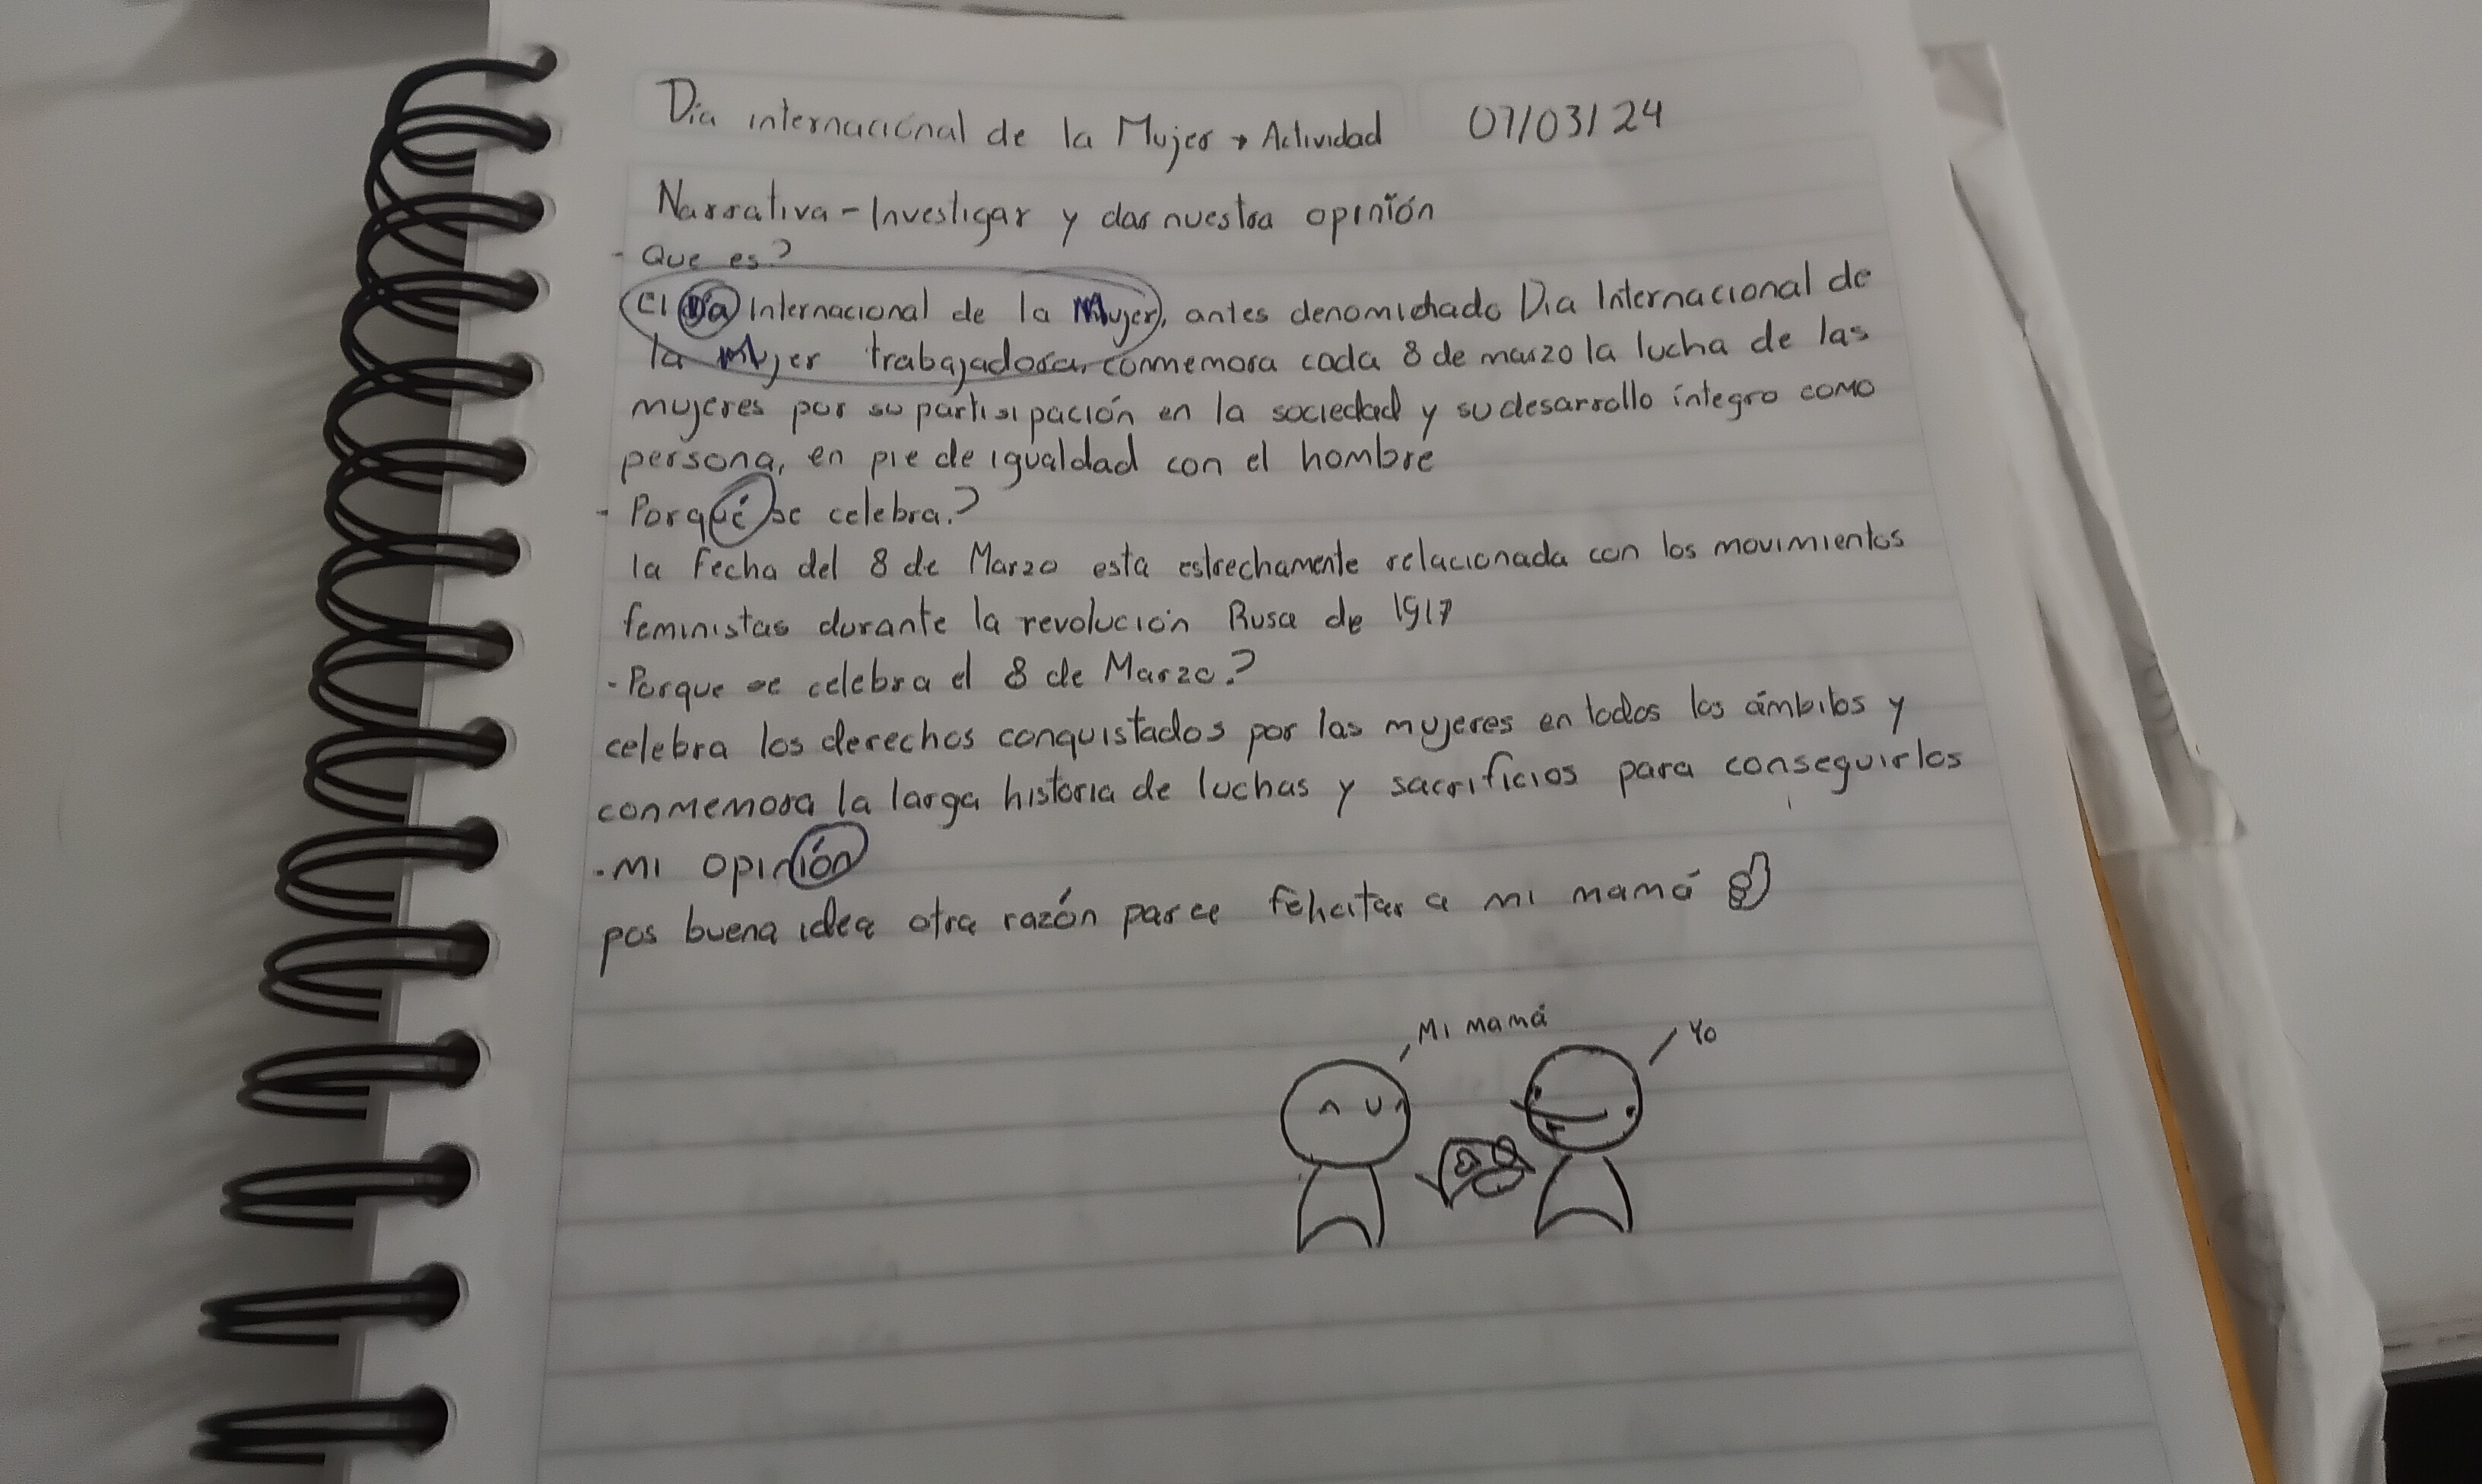 Dia internacional de la Mujer → Actividad 07/03/24
Narrativa - Investigar y dar nuestra opinión
- Que es?
El Día Internacional de la Mujer, antes denominado Dia Internacional de
la Mujer trabajadora, conmemora cada 8 de marzo la lucha de las
mujeres por su partisipación en la sociedad y su desarrollo íntegro como
persona, en pie de igualdad con el hombre
- Porqué se celebra.?
la Fecha del 8 de Marzo esta estrechamente relacionada con los movimientos
feministas durante la revolución Rusa de 1917
- Porque se celebra el 8 de Marzo.?
celebra los derechos conquistados por las mujeres en todos los ámbitos y
conmemora la larga historia de luchas y sacrificios para conseguirlos
. Mi opinión
pos buena idea otra razón para felicitar a mi mamá
Mi mamá
Yo